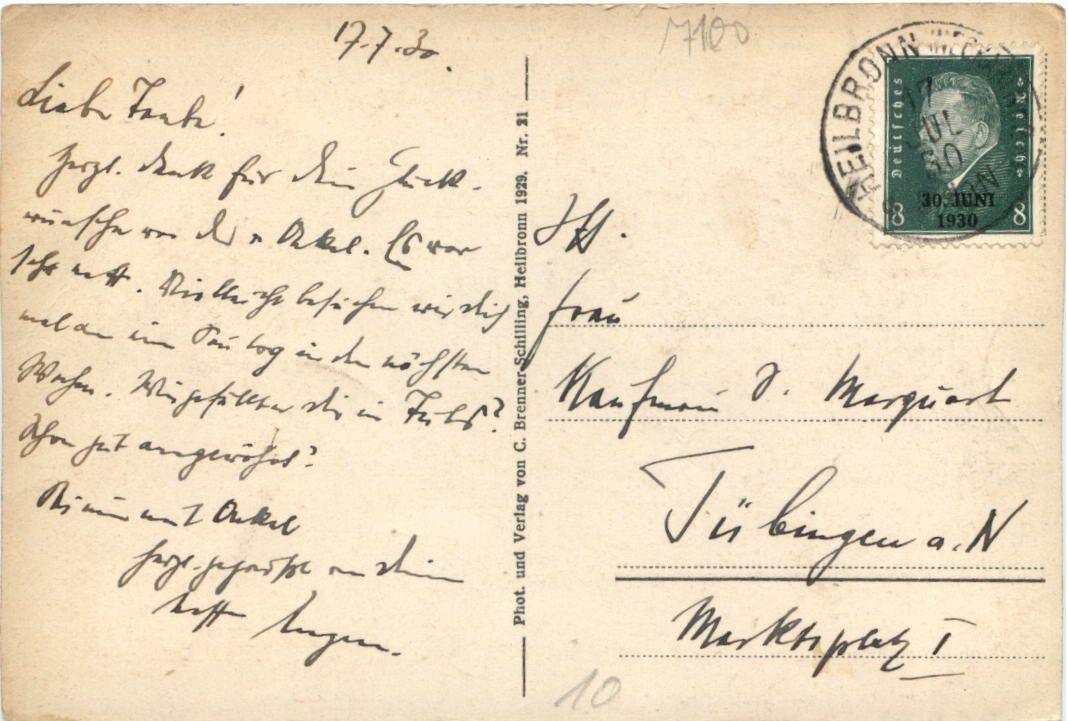 17.7.30.
Liebe Tante!
Herzl. Dank für Dein Glück-
wünsche von Dir u. Onkel. Es war
sehr nett. Vielleicht besuchen wir Dich
mal an im Sonntag in den nächsten
Wochen. Wie gefällt es Dir in Tübg?
Schon gut angewöhnt?
Sei nun mit Onkel
herzl. gegrüßt von Deinem
Neffe Eugen.
Phot. und Verlag von C. Brenner-Schilling, Heilbronn 1929. Nr. 21
7100
HEILBRONN (NECKAR)
17
JUL
30
Deutsches Reich
30. JUNI
1930
8 8
Frau
Kaufmann J. Marquart
Tübingen a. N
Marktsplatz I
10